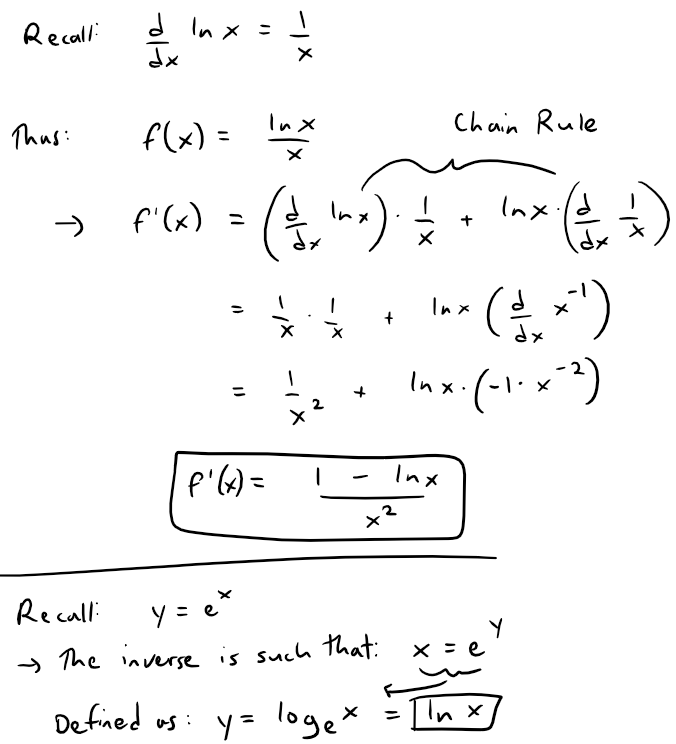 Recall: d/dx ln x = 1/x
Thus: f(x) = ln x / x
Chain Rule
→ f'(x) = (d/dx ln x) · 1/x + ln x · (d/dx 1/x)
= 1/x · 1/x + ln x (d/dx x^-1)
= 1/x^2 + ln x · (-1 · x^-2)
f'(x) = (1 - ln x) / x^2
Recall: y = e^x
→ The inverse is such that: x = e^y
Defined as: y = log_e x = ln x